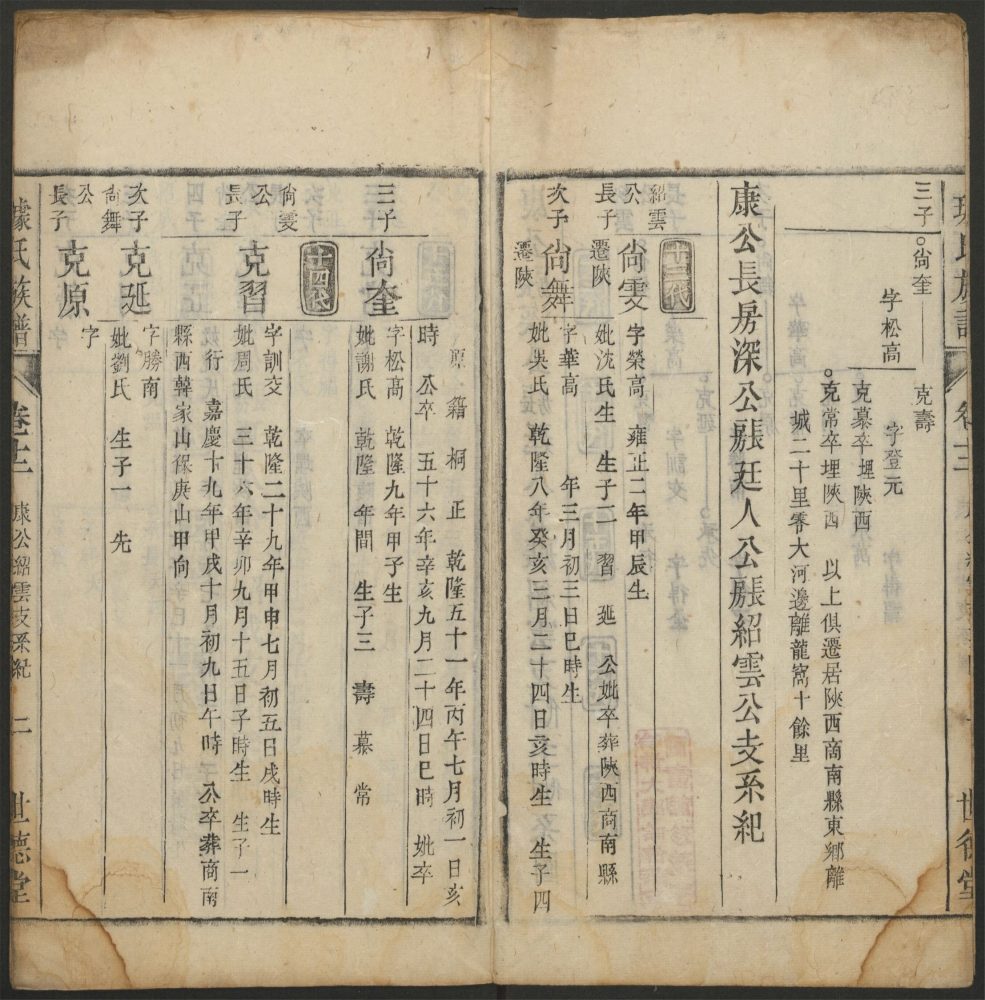 三子
尚奎
字松高
克壽
字登元
克慕卒埋陝西
克常卒埋陝西 以上俱遷居陝西商南縣東鄉離
城二十里零大河邊離龍窩十餘里
康公長房深公派廷人公派紹雲公支系紀
十三代
紹雲
公
長子
尚雯
遷陝
字榮高 雍正二年甲辰生
妣沈氏生 生子二 習 延 公妣卒葬陝西商南縣
次子
尚舞
遷陝
字華高 年三月初三日巳時生
妣吳氏 乾隆八年癸亥三月二十四日亥時生 生子四
原籍桐 正 乾隆五十一年丙午七月初一日亥
時 公卒 五十六年辛亥九月二十四日巳時 妣卒
三子
尚奎
字松高 乾隆九年甲子生
妣謝氏 乾隆 年間 生子三 壽 慕 常
十四代
尚雯
公
長子
克習
字訓交 乾隆二十九年甲申七月初五日戌時生
妣周氏 三十六年辛卯九月十五日子時生 生子一
行 嘉慶十九年甲戌十月初九日午時 公卒葬商南
縣西韓家山保庚山甲向
次子
克延
字勝南
妣劉氏 生子一 先
尚舞
公
長子
克原
字
氏族譜 卷十二 康公紹雲支系紀 二 世德堂